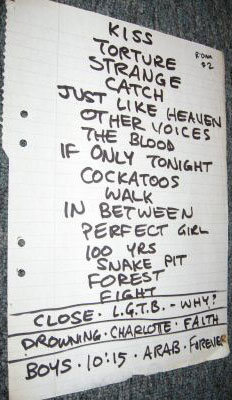 KISS
TORTURE
STRANGE
CATCH
JUST LIKE HEAVEN
OTHER VOICES
THE BLOOD
IF ONLY TONIGHT
COCKATOOS
WALK
IN BETWEEN
PERFECT GIRL
100 YRS
SNAKE PIT
FOREST
FIGHT
CLOSE · L.G.T.B. - WHY?
DROWNING · CHARLOTTE · FAITH
BOYS · 10:15 · ARAB · FOREVER